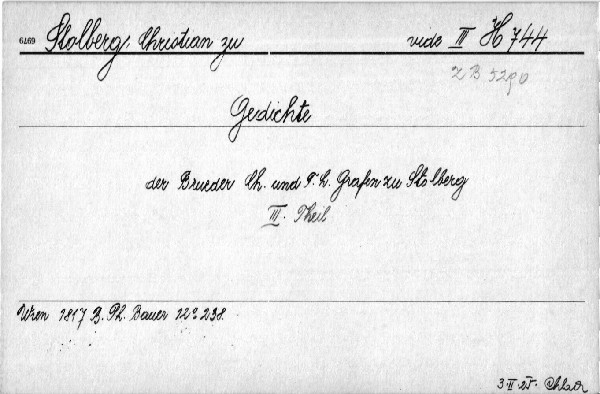 6469 Stolberg, Christian zu vide III H 744
Z B 5290
Gedichte
der Brueder Ch. und F. L. Grafen zu Stolberg
III. Theil
Wien 1817 B. Ph. Bauer 12º 238.
3 II 25.